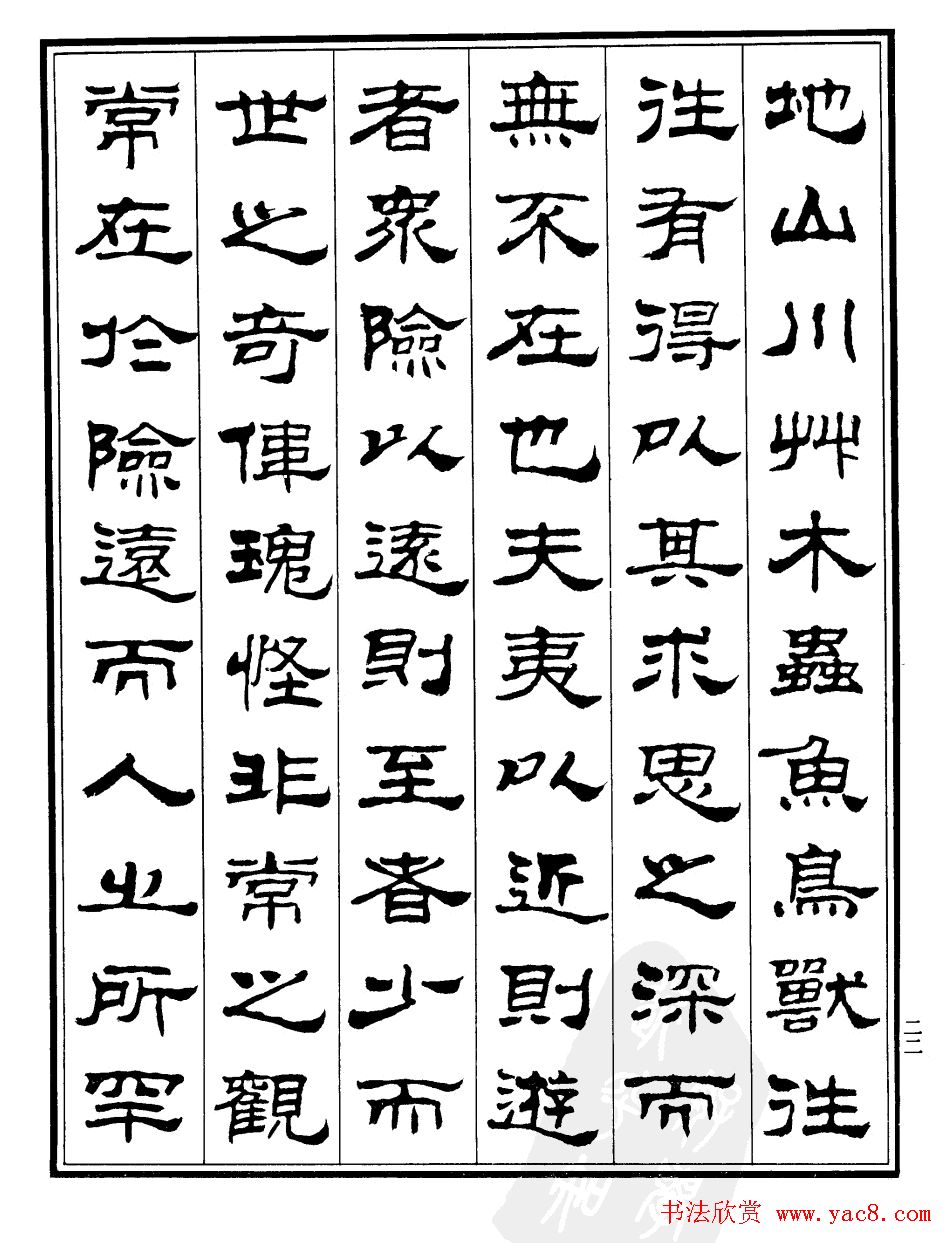 地山川艸木蟲魚鳥獸往
往有得以其求思之深而
無不在也夫夷以近則遊
者衆險以遠則至者少而
世之奇偉瑰怪非常之觀
常在於險遠而人之所罕
二二
书法欣赏 www.yac8.com